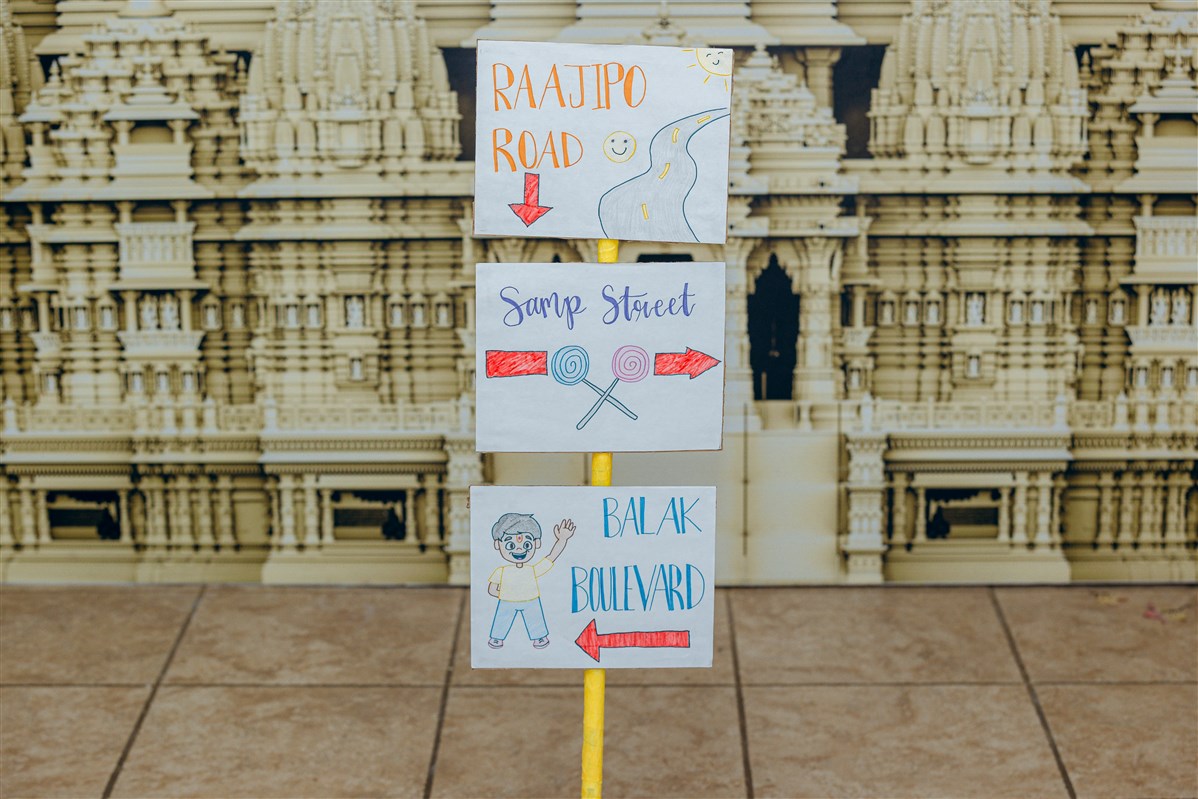 RAAJIPO
ROAD
Samp Street
BALAK
BOULEVARD